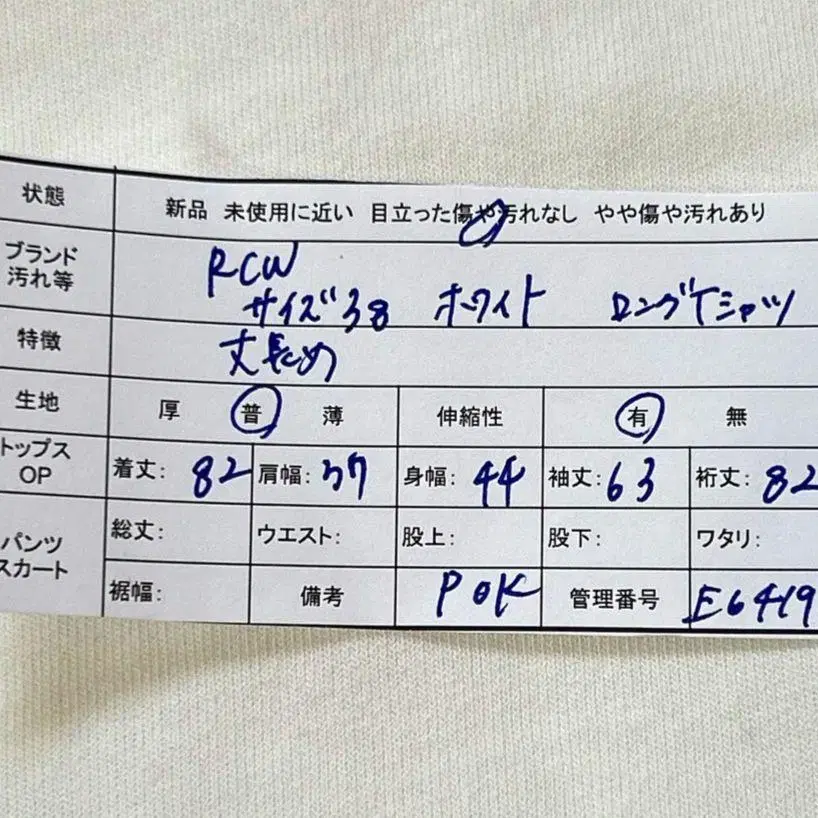 状態 新品 未使用に近い 目立った傷や汚れなし やや傷や汚れあり
ブランド 汚れ等 RCW
サイズ38 ホワイト ロングTシャツ
特徴 丈長め
生地 厚 普 薄 伸縮性 有 無
トップス OP 着丈: 82 肩幅: 37 身幅: 44 袖丈: 63 裄丈: 82
パンツ スカート 総丈: ウエスト: 股上: 股下: ワタリ:
裾幅: 備考 POK 管理番号 E6419